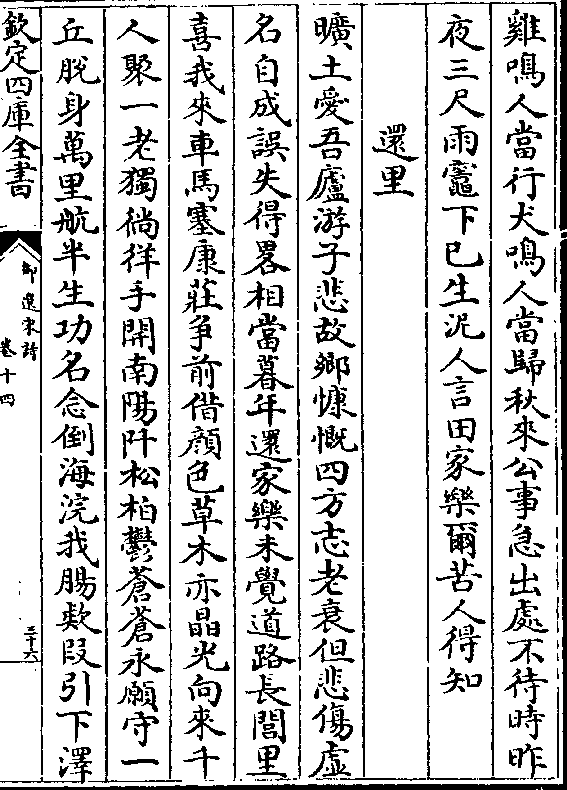 雞鳴人當行犬鳴人當歸秋來公事急出處不待時昨
夜三尺雨竈下已生泥人言田家樂爾苦人得知
還里
曠土愛吾廬游子悲故鄉慷慨四方志老衰但悲傷虛
名自成誤失得畧相當暮年還家樂未覺道路長閭里
喜我來車馬塞康莊爭前借顏色草木亦晶光向來千
人聚一老獨徜徉手開南陽阡松柏鬱蒼蒼永願守一
丘脫身萬里航半生功名念倒海浣我腸欵段引下澤
欽定四庫全書
御選宋詩
卷十四
三十六